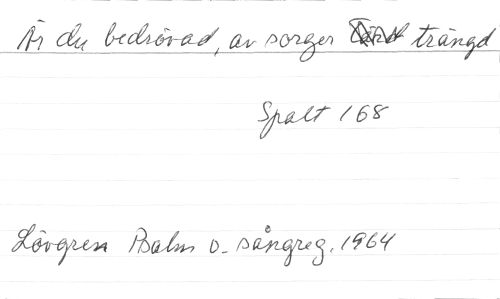 Är du bedrövad, av sorger trängd
Spalt 168
Lövgren Psalm o. sångreg. 1964